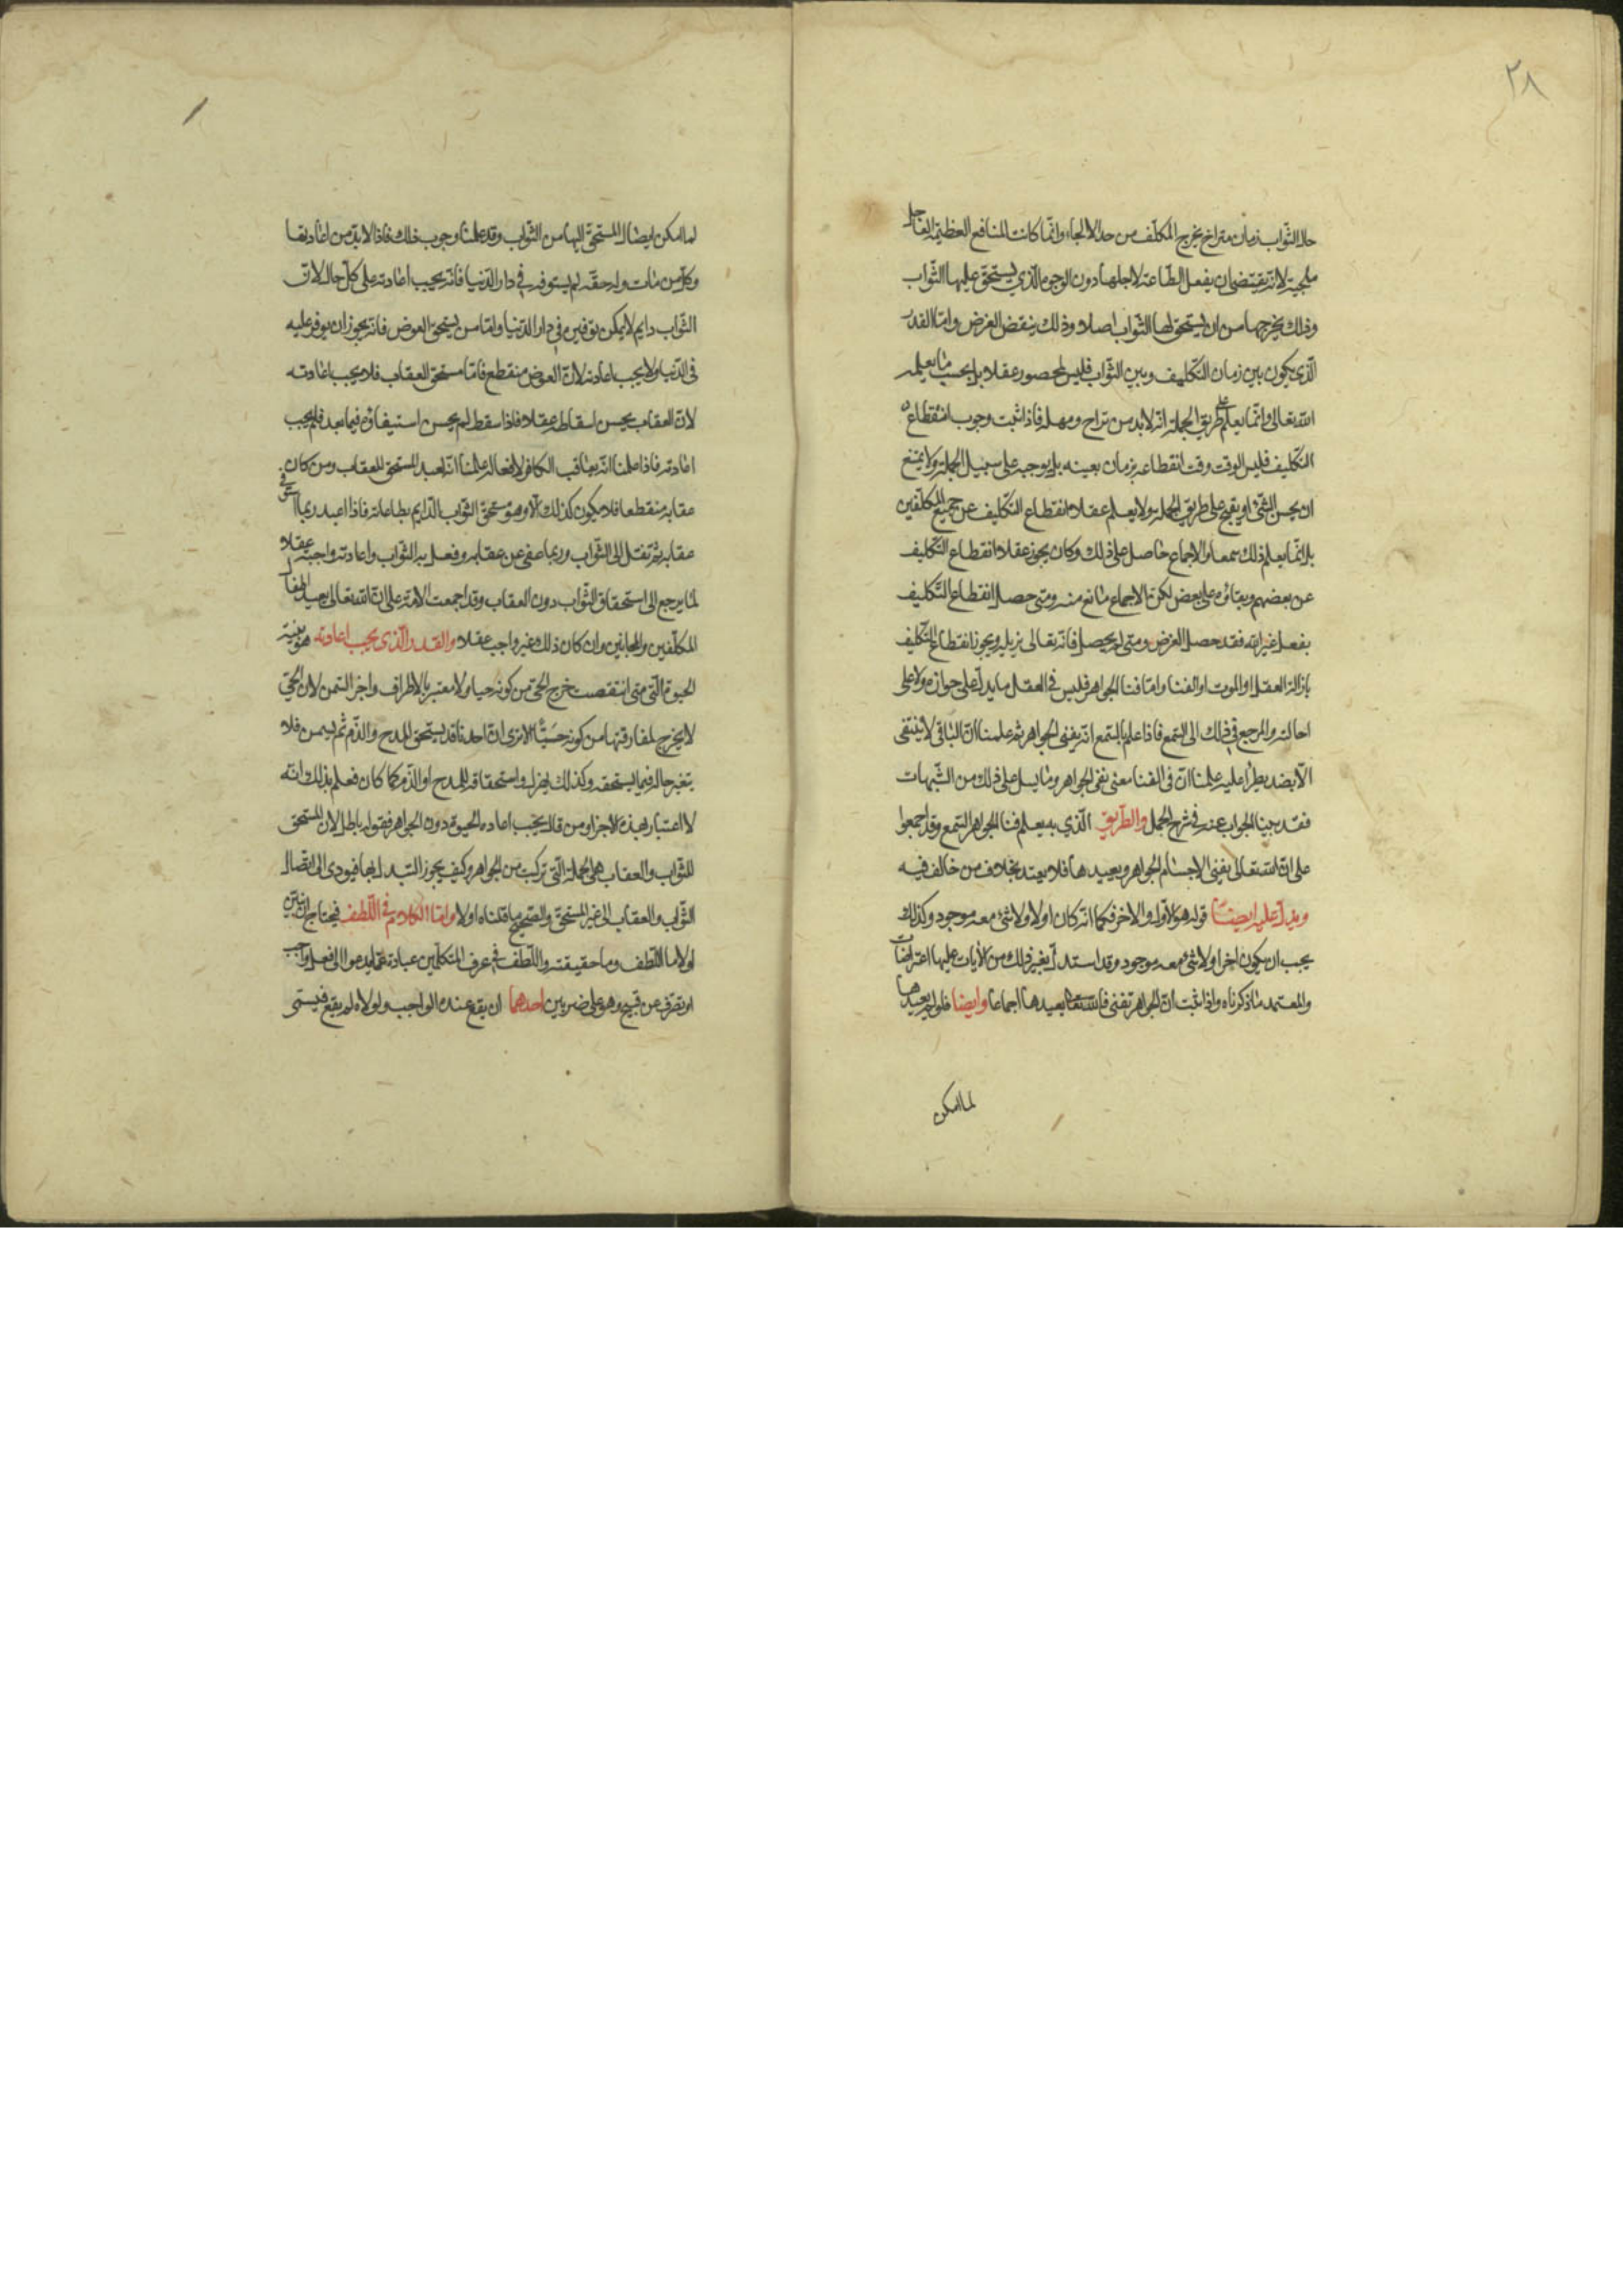 ٢٨
حال الثواب زمان متراخ يخرج المكلف من حد الالجاء وانما كانت المنافع العظيمة العاجلة
ملجية لانه يقتضى ان يفعل الطاعة لاجلها دون الوجوه الذي يستحق عليها الثواب
وذلك يخرجها من ان يستحق لها الثواب اصلا وذلك ينقض الغرض واما القدر
الذى يكون بين زمان التكليف وبين الثواب فليس بمحصور عقلا بل بحسب ما يعلمه
الله تعالى وانما يعلم على طريق الجملة انه لابد من تراخ ومهلة فاذا ثبت وجوب انقطاع
التكليف فليس الوقت وقت انقطاعه بزمان بعينه بل يوجبه على سبيل الجملة ولا يمتنع
ان يحسن الشئ او يقبح على طريق الجملة ولا يعلم عقلا انقطاع التكليف عن جميع المكلفين
بل انما يعلم ذلك سمعا والاجماع حاصل على ذلك وكان يجوز عقلا انقطاع التكليف
عن بعضهم وبقائه على بعض لكن الاجماع مانع منه ومتى حصل انقطاع التكليف
بفعل غير الله فقد حصل الغرض ومتى لم يحصل فانه تعالى يزيله ويجوز انقطاع التكليف
بازالة العقل او الموت او الفنا واما فنا الجواهر فليس في العقل ما يدل على جوازه ولا على
احالته والمرجع في ذلك الى السمع فاذا علم بالسمع انه يفنى الجواهر ثم علمنا ان الباقى لا ينتفى
الا بضد يطرا عليه علمنا ان فى الفنا معنى نفى الجواهر وما يسل على ذلك من الشبهات
فقد بينا الجواب عنه في شرح الجمل والطريق الذي به يعلم فنا الجواهر السمع وقد اجمعوا
على ان الله تعالى يفنى الاجسام الجواهر ويعيدها فلا يعتد بخلاف من خالف فيه
ويدل عليه ايضا قوله هو الاول والاخر فكما انه كان اولا ولا شئ معه موجود وكذلك
يجب ان يكون اخرا ولا شئ معه موجود وقد استدل بغير ذلك من الايات عليها اعتراضات
والمعتمد ما ذكرناه واذا ثبت ان الجواهر تفنى فالله تعالى يعيدها اجماعا وايضا فلو لم يعيدها
لما امكن
لما امكن ايصال المستحق اليها من الثواب وقد علمنا وجوب ذلك فاذا لابد من اعادتها
وكل من مات وله حقه لم يستوفه في دار الدنيا فانه يجب اعادته على كل حال لان
الثواب دايم لا يمكن توفيره في دار الدنيا واما من يستحق العوض فانه يجوز ان يوفر عليه
فى الدنيا ولا يجب اعادته لان العوض منقطع فاما مستحق العقاب فلا يجب اعادته
لان العقاب يحسن اسقاطه عقلا فاذا سقط لم يحسن استيفاؤه فيما بعد فلم يجب
اعادته فاذا علمنا انه يعاقب الكافر لا محالة علمنا انه يعيد المستحق للعقاب ومن كان
عقابه منقطعا فلا يكون كذلك الا وهو مستحق الثواب الدايم بطاعاته فاذا اعيد ربما استوفى
عقابه ثم نقل الى الثواب وربما عفى عن عقابه وفعل به الثواب واعادته واجبة عقلا
لما يرجع الى استحقاق الثواب دون العقاب وقد اجمعت الامة على ان الله تعالى يعيد اطفال
المكلفين والمجانين وان كان ذلك غير واجب عقلا والقدر الذى يجب اعادته هو بنية
الحيوة التى متى انتقصت خرج الحى من كونه حيا ولا معتبر بالاطراف واجزا السمن لان الحى
لا يخرج لمفارقتها من كونه حيا الا ترى ان احدنا قد يستحق المدح والذم ثم يسمن فلا
يتغير حاله فيما يستحقه وكذلك يهزل واستحقاقه للمدح او الذم كما كان فعلم بذلك انه
لا اعتبار بهذه الاجزا ومن قال يجب اعادة الحيوة دون الجواهر فقوله باطل لان المستحق
للثواب والعقاب هى الجملة التى تركبت من الجواهر وكيف يجوز التبدل بها فيودى الى ايصال
الثواب والعقاب الى غير المستحق والصحيح ما قلناه اولا واما الكلام في اللطف فيحتاج ان نبين
اولا ما اللطف وما حقيقته واللطف في عرف المتكلمين عبارة عما يدعوا الى فعل واجب
او تصرف عن قبيح وهو على ضربين احدهما ان يقع عنده الواجب ولولاه لم يقع فيسمى